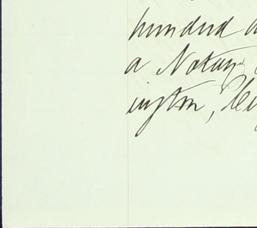 hundred a
a Notary
ington,